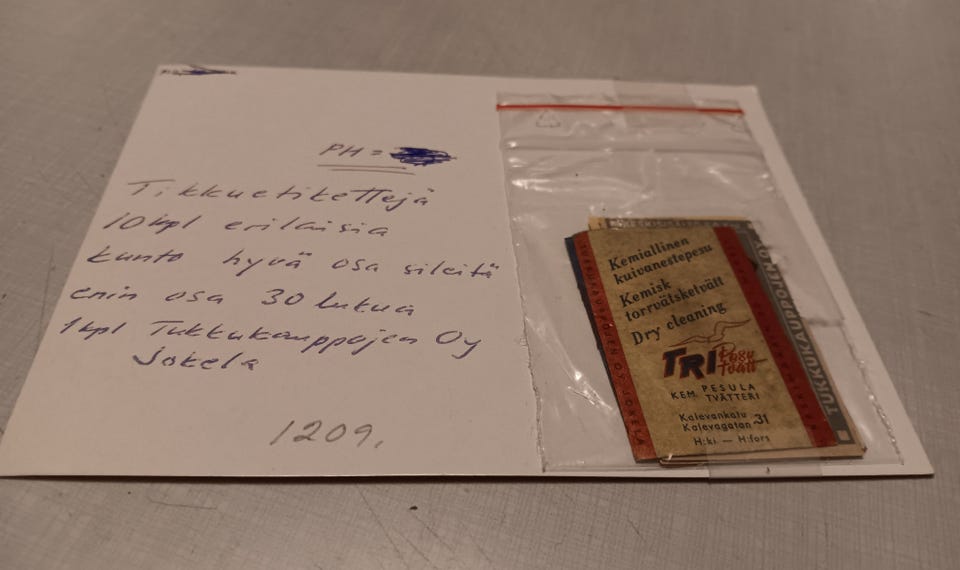 PH =
Tikkuetikettejä
10 kpl erilaisia
kunto hyvä osa sileitä
enin osa 30 lukua
1 kpl Tukkukauppojen Oy
Jokela
1209.
Kemiallinen
kuivanestepesu
Kemisk
torrvätsketvätt
Dry cleaning
TRI Pesu
Tvätt
KEM. PESULA
TVÄTTERI
Kalevankatu 31
Kalevagatan
H:ki — H:fors
TUKKUKAUPPOJEN OY JOKELA
TUKKUKAUPPOJEN